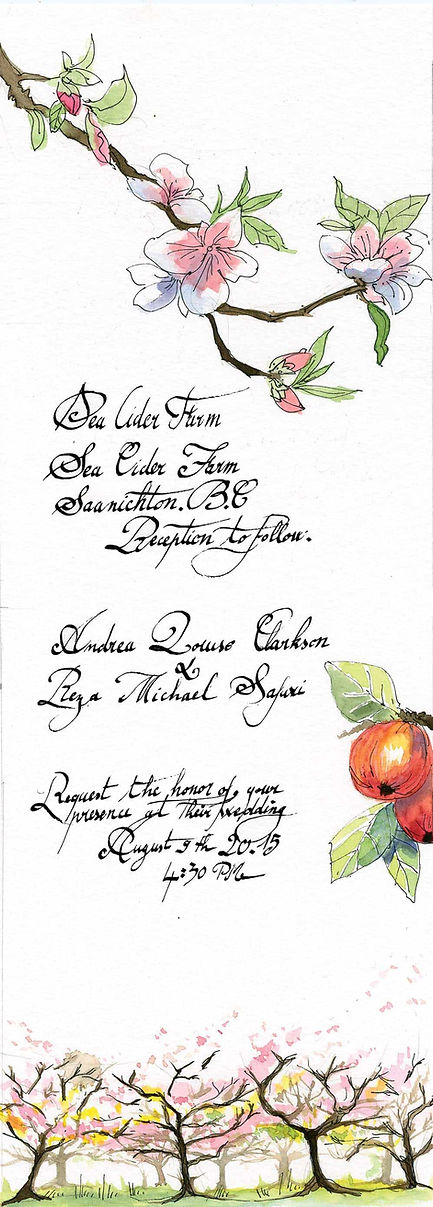 Sea Cider Farm
Sea Cider Farm
Saanichton. B.C
Reception to follow.
Andrea Louise Clarkson
&
Reza Michael Safari
Request the honor of your
presence at their wedding
August 9th 20.15
4:30 PM